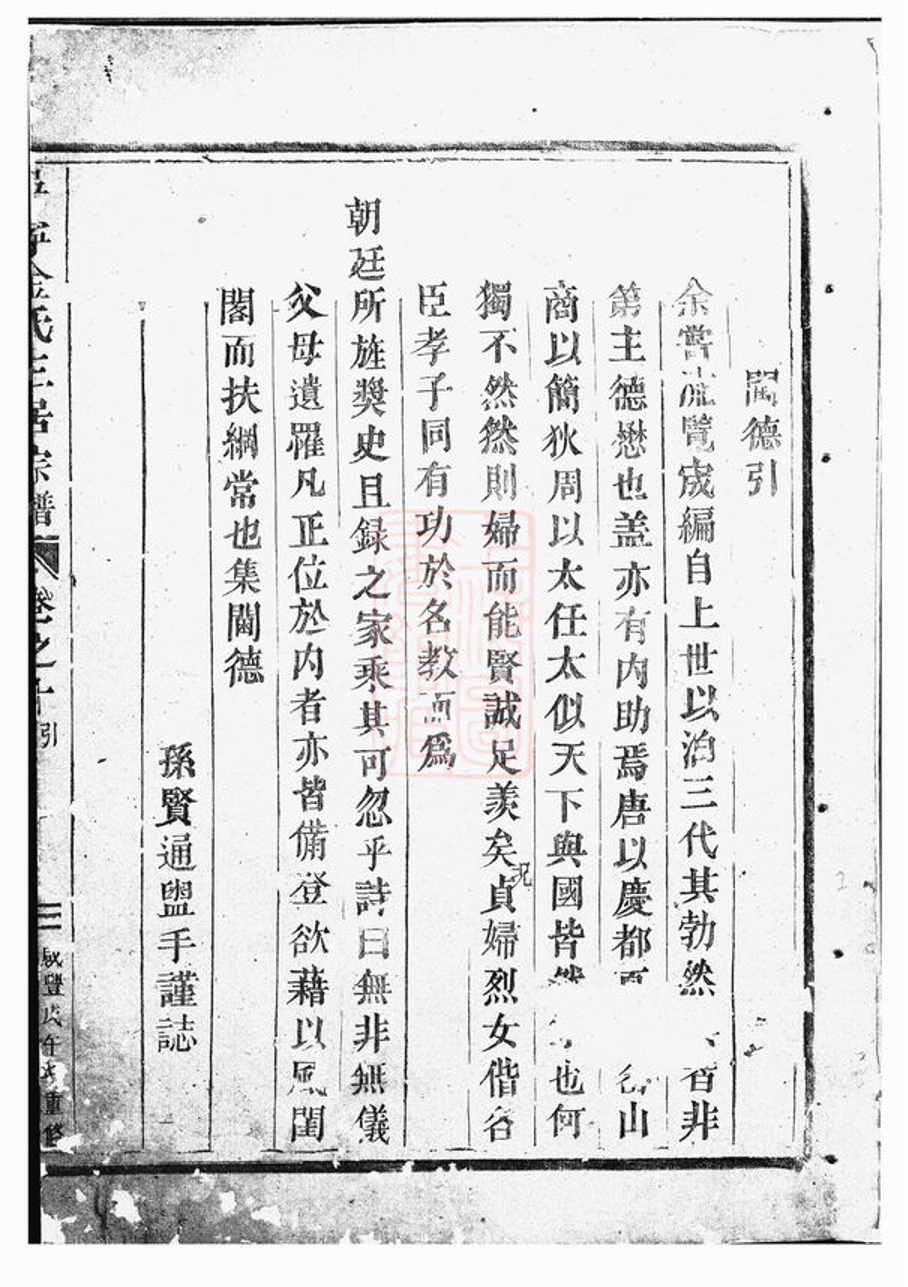 閫德引
余嘗流覽宬編自上世以洎三代其勃然 者非
第主德懋也盖亦有内助焉唐以慶都 山
商以簡狄周以太任太似天下與國皆然 也何
獨不然然則婦而能賢誠足羨矣況貞婦烈女偕各
臣孝子同有功於名教而爲
朝廷所旌奬史且録之家乘其可忽乎詩曰無非無儀
父母遺罹凡正位於内者亦皆備登欲藉以風閨
閣而扶綱常也集閫德
孫賢通盥手謹誌
金氏 宗譜 卷之十 引 三 咸豐戊午 重修